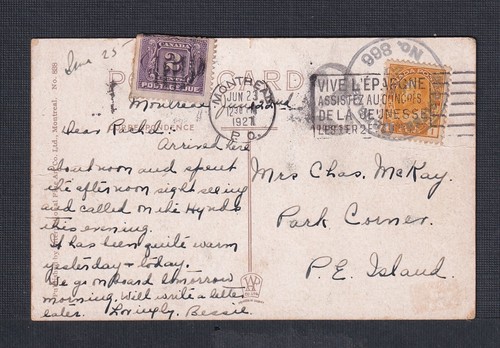 June 25
CANADA
2
POSTAGE DUE
POST CARD
MONTREAL
JUN 23
12 30 PM
1927
P.Q.
No. 866
VIVE L'EPARGNE
ASSISTEZ AU CONGRES
DE LA JEUNESSE
Montreal June 22nd
CORRESPONDENCE
Dear Rachel:-
Arrived here
about noon and spent
the afternoon sight seeing
and called on the Hynds
this evening.
It has been quite warm
yesterday + today.
We go on board tomorrow
morning. Will write a letter
later. Lovingly, Bessie.
Mrs Chas. McKay.
Park Corner.
P. E. Island.
Co. Ltd., Montreal. No. 888